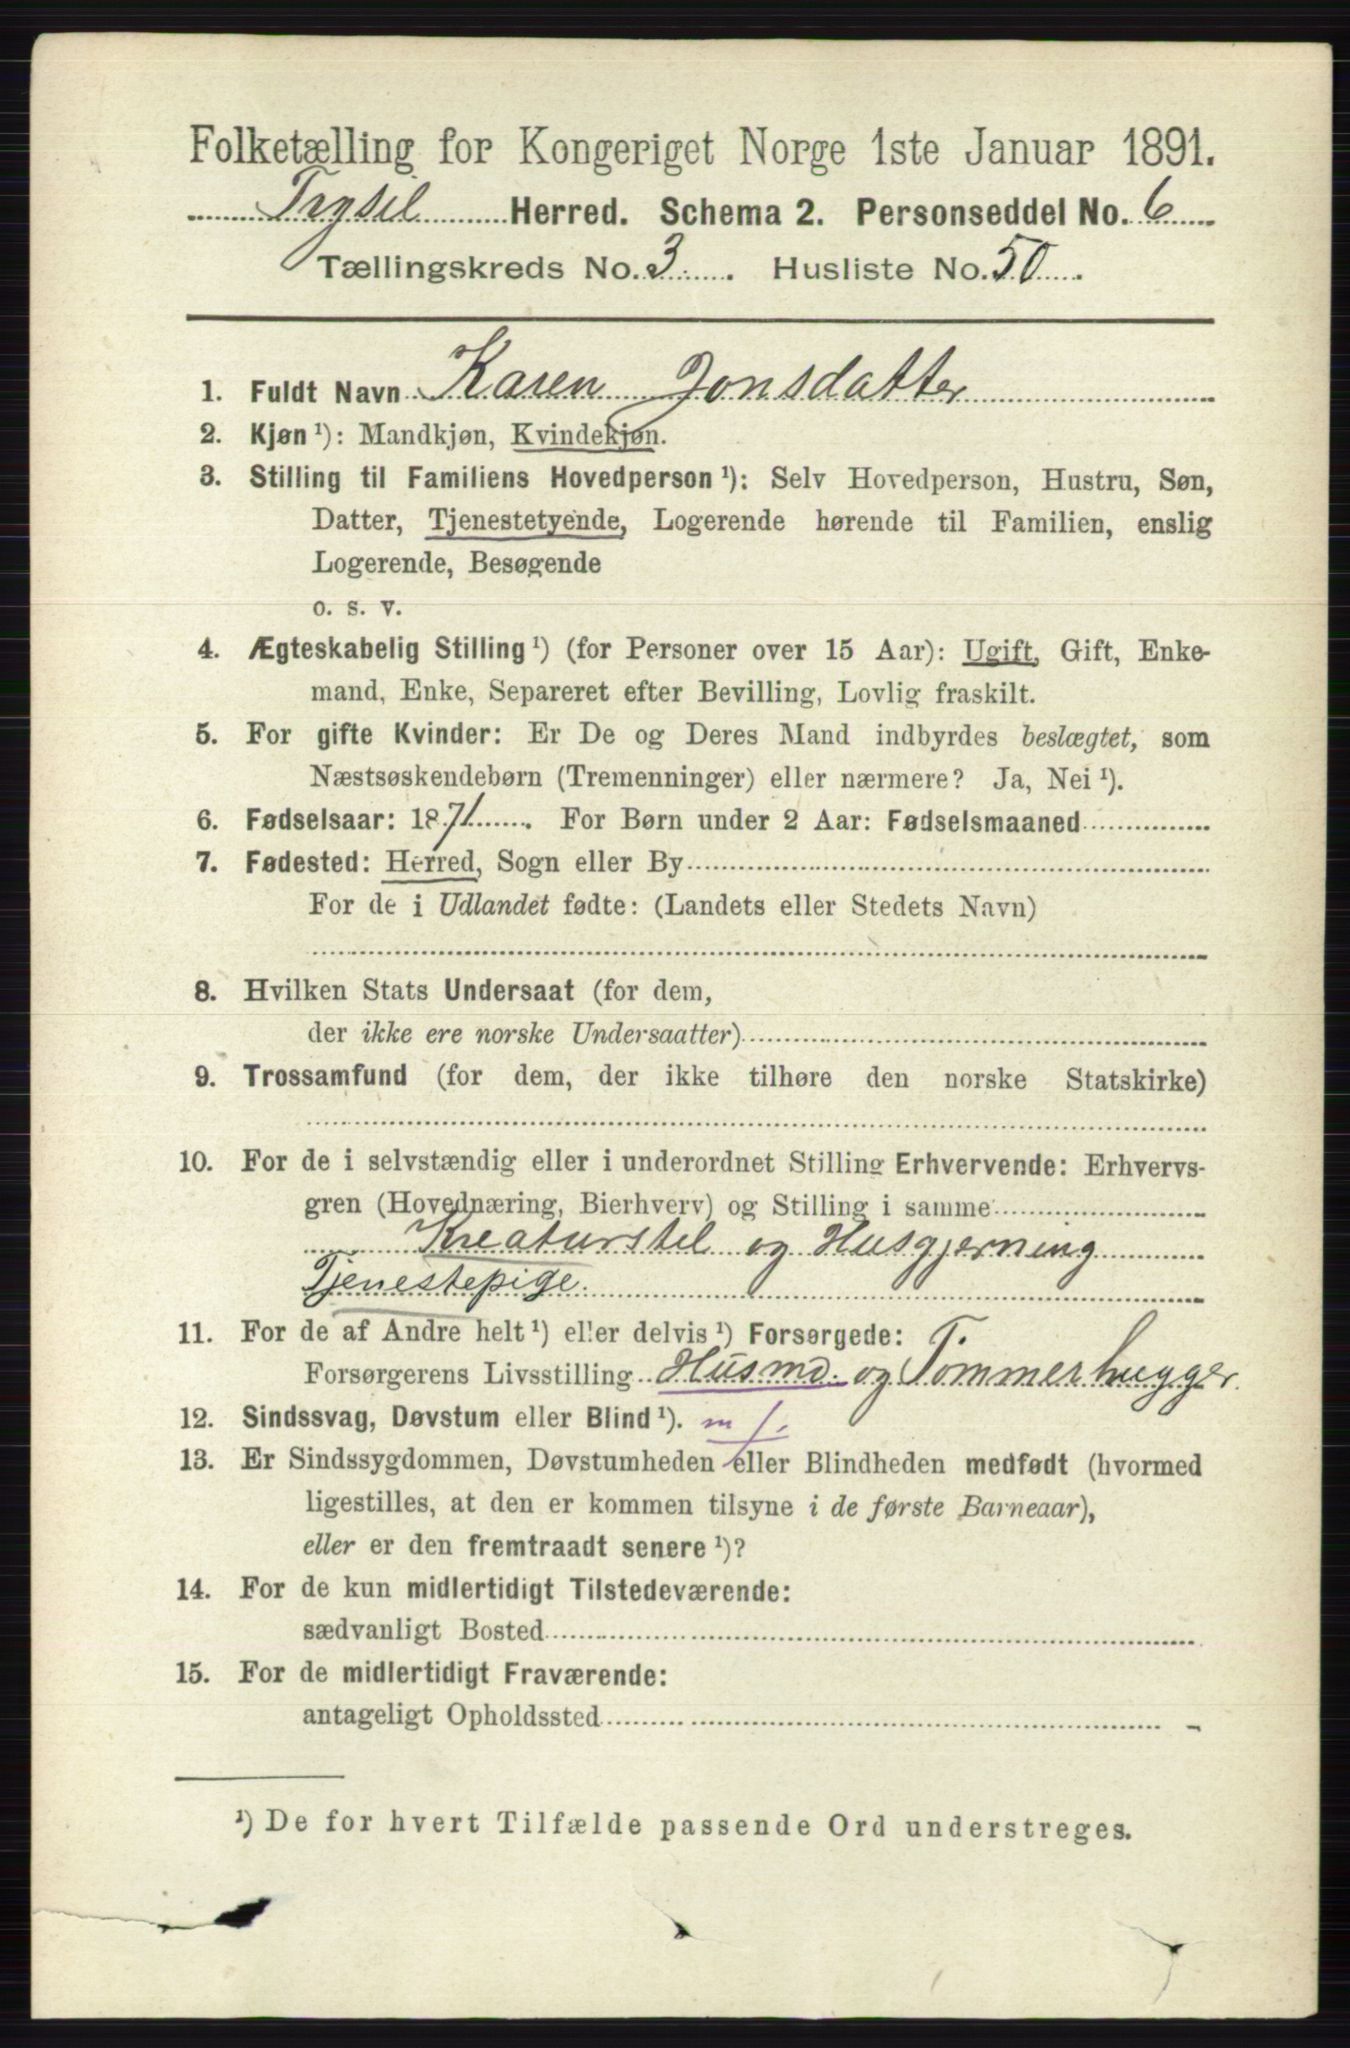 Folketælling for Kongeriget Norge 1ste Januar 1891.
Trysil Herred. Schema 2. Personseddel No. 6
Tællingskreds No. 3. Husliste No. 50.
1. Fuldt Navn Karen Jonsdatter
2. Kjøn ¹): Mandkjøn, Kvindekjøn.
3. Stilling til Familiens Hovedperson ¹): Selv Hovedperson, Hustru, Søn,
Datter, Tjenestetyende, Logerende hørende til Familien, enslig
Logerende, Besøgende
o. s. v.
4. Ægteskabelig Stilling ¹) (for Personer over 15 Aar): Ugift, Gift, Enke-
mand, Enke, Separeret efter Bevilling, Lovlig fraskilt.
5. For gifte Kvinder: Er De og Deres Mand indbyrdes beslægtet, som
Næstsøskendebørn (Tremenninger) eller nærmere? Ja, Nei ¹).
6. Fødselsaar: 1871. For Børn under 2 Aar: Fødselsmaaned
7. Fødested: Herred, Sogn eller By
For de i Udlandet fødte: (Landets eller Stedets Navn)
8. Hvilken Stats Undersaat (for dem,
der ikke ere norske Undersaatter)
9. Trossamfund (for dem, der ikke tilhøre den norske Statskirke)
10. For de i selvstændig eller i underordnet Stilling Erhvervende: Erhvervs-
gren (Hovednæring, Bierhverv) og Stilling i samme
Kreaturstel og Husgjerning
Tjenestepige.
11. For de af Andre helt ¹) eller delvis ¹) Forsørgede: T.
Forsørgerens Livsstilling Husmd. og Tømmerhugger.
12. Sindssvag, Døvstum eller Blind ¹). m /.
13. Er Sindssygdommen, Døvstumheden eller Blindheden medfødt (hvormed
ligestilles, at den er kommen tilsyne i de første Barneaar),
eller er den fremtraadt senere ¹)?
14. For de kun midlertidigt Tilstedeværende:
sædvanligt Bosted
15. For de midlertidigt Fraværende:
antageligt Opholdssted
¹) De for hvert Tilfælde passende Ord understreges.